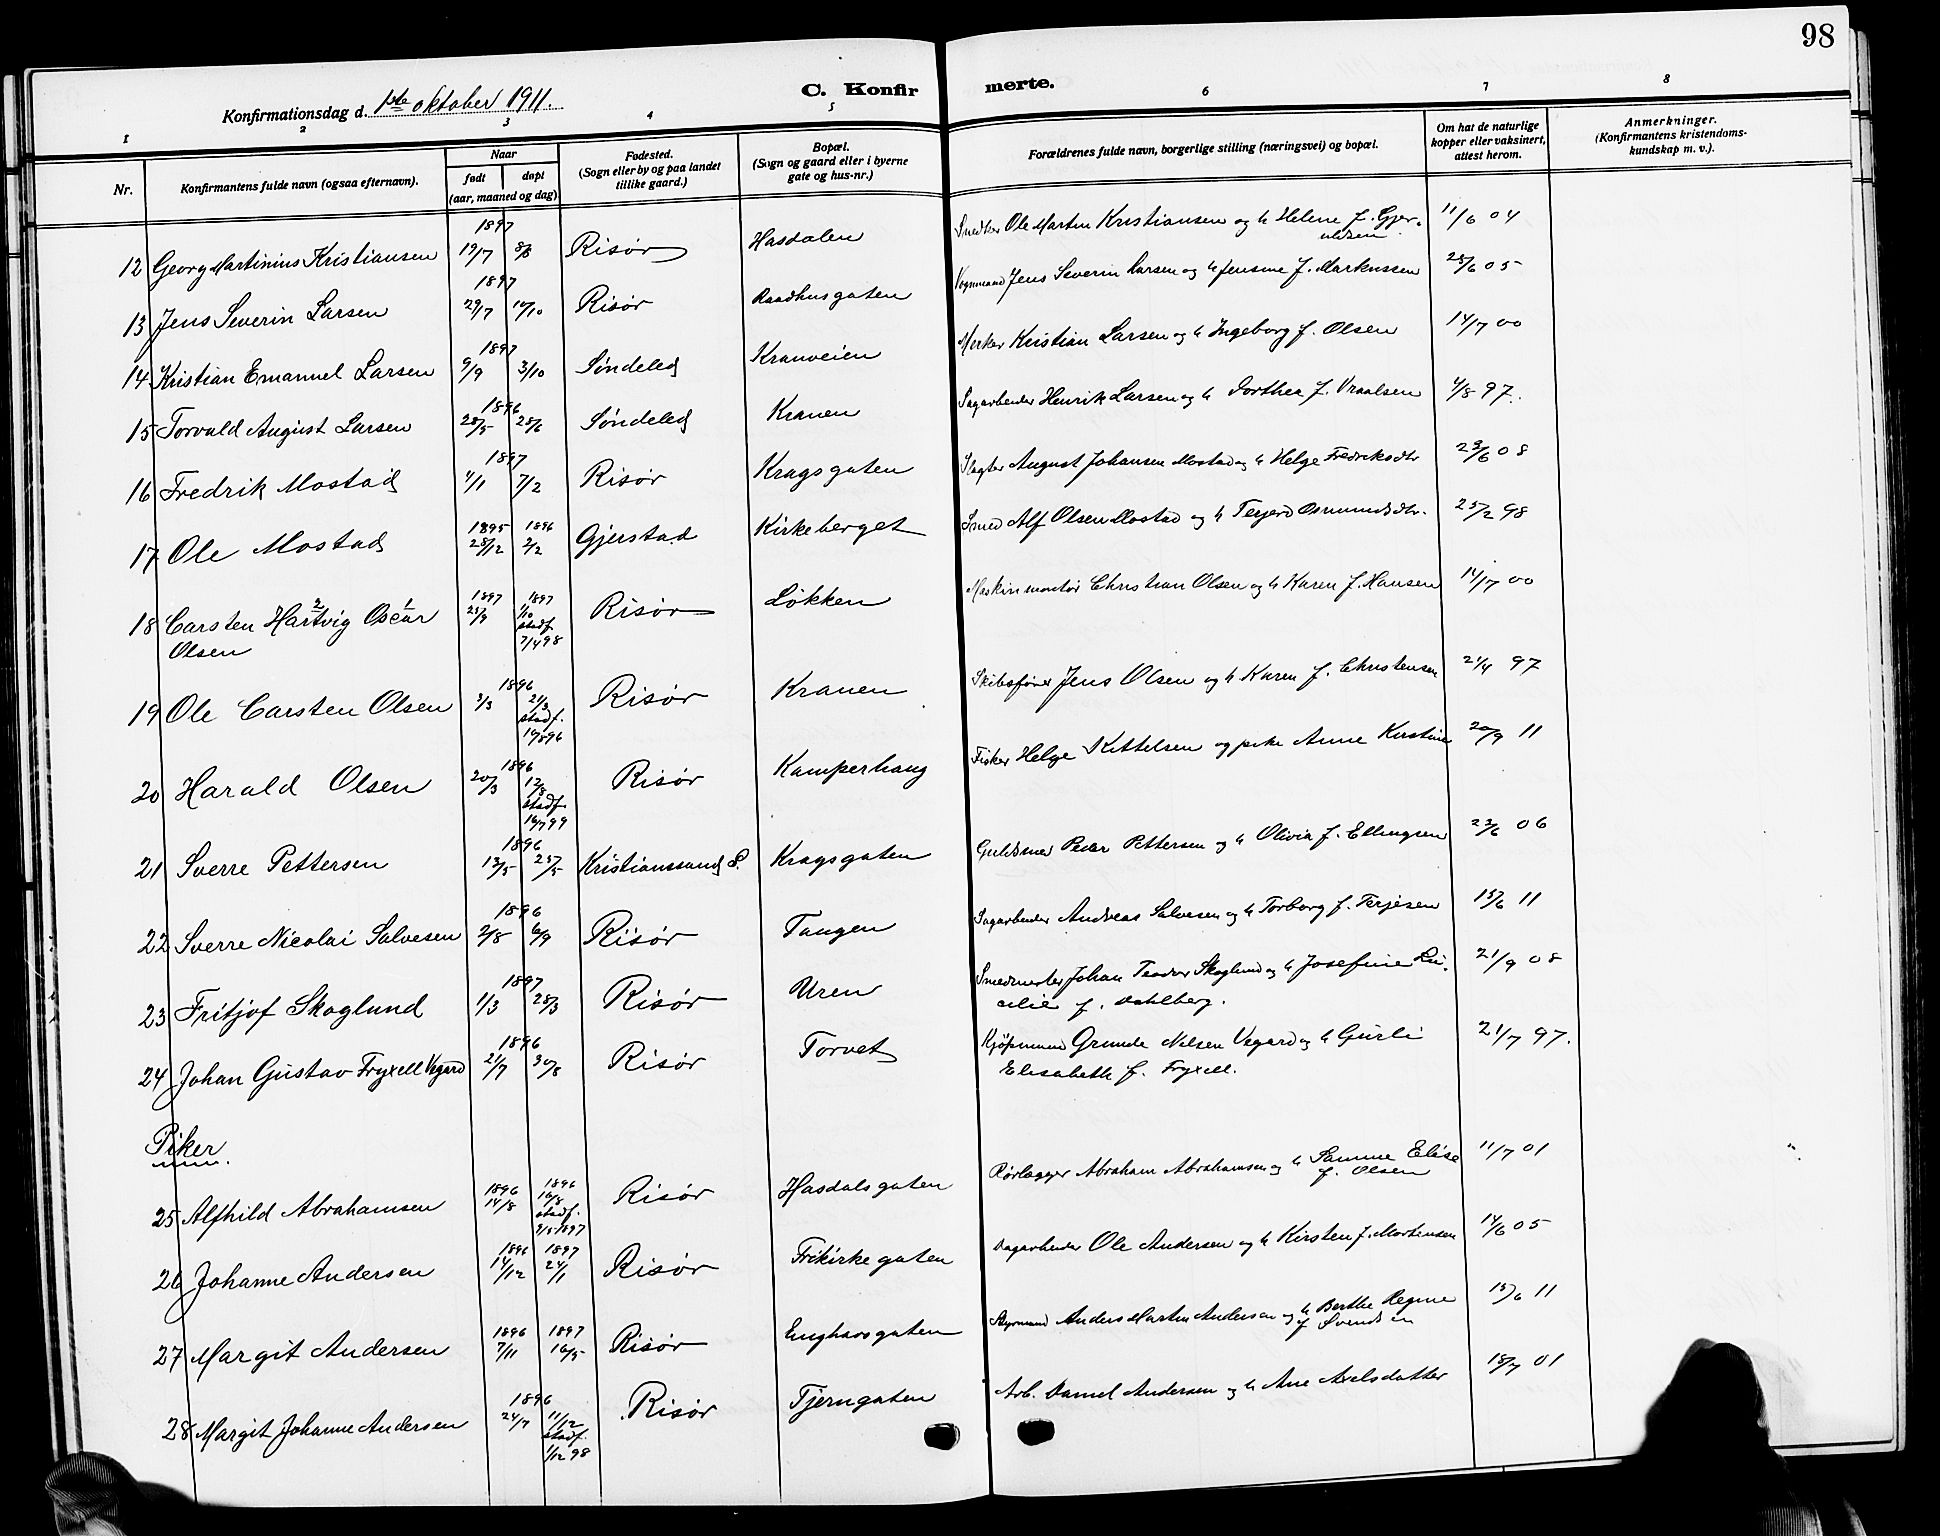 98
Konfirmationsdag d. 1ste oktober 1911.
C. Konfirmerte.
1 2 3 4 5 6 7 8
Nr. Konfirmantens fulde navn (ogsaa efternavn). Naar født døpt (aar, maaned og dag) Fødested. (Sogn eller by og paa landet tillike gaard.) Bopæl. (Sogn og gaard eller i byerne gate og hus-nr.) Forældrenes fulde navn, borgerlige stilling (næringsvei) og bopæl. Om hat de naturlige kopper eller vaksinert, attest herom. Anmerkninger. (Konfirmantens kristendomskundskap m. v.).
12 Georg Martinius Kristiansen 1897 19/7 8/8 Risør Hasdalen Ole Martin Kristiansen og h Helene f. Gjeruldsen 11/6 04
13 Jens Severin Larsen 1897 29/7 10/10 Risør Raadhusgaten Vognmand Jens Severin Larsen og h Jensine f. Markussen 28/6 05
14 Kristian Emanuel Larsen 1897 9/9 3/10 Søndeled Kranveien Kristian Larsen og h Ingeborg f. Olsen 14/7 00
15 Torvald August Larsen 1896 28/5 28/6 Søndeled Kranen Sagarbeider Henrik Larsen og h Dorthea f. Vraalsen 4/8 97.
16 Fredrik Mostad 1897 4/1 7/2 Risør Kragsgaten Slagter August Johansen Mostad og h Helge Fredriksdtr 29/6 08
17 Ole Mostad 1895 28/12 1896 2/2 Gjerstad Kirkeberget Smed Alf Olsen Mostad og h Terjerd Osmundsdtr. 25/2 98
18 Carsten Hartvig Oscar Olsen 1897 25/9 1897 1/10 stadf. 7/4 98 Risør Løkken Maskinmontør Christian Olsen og h Karen f. Hansen 14/7 00
19 Ole Carsten Olsen 1896 3/3 21/3 stadf. 16/8 96 Risør Kranen Skibsfører Jens Olsen og h Karen f. Christensen 21/4 97
20 Harald Olsen 1896 20/3 12/8 stadf. 16/7 99 Risør Kamperhaug Fisker Helge Kittelsen og pike Anne Kirstine 20/9 11
21 Sverre Pettersen 1896 13/5 25/5 Kristianssand S. Kragsgaten Guldsmed Peder Pettersen og h Olivia f. Ellingsen 23/6 06
22 Sverre Nicolai Salvesen 1896 2/8 6/9 Risør Tangen Sagarbeider Andreas Salvesen og h Torborg f. Terjesen 15/6 11
23 Fritjof Skoglund 1897 1/3 28/3 Risør Uren Smedmester Johan Teodor Skoglund og h Josefine f. Dahlberg. 21/9 08
24 Johan Gustav Fryxell Vegard 1896 21/7 30/8 Risør Torvet Kjøpmand Grunde Nilsen Vegard og h Gurli Elisabeth f. Fryxell. 21/7 97.
Piker
25 Alfhild Abrahamsen 1896 14/8 1896 16/8 stadf. 9/5 1897 Risør Hasdalsgaten Rørlægger Abraham Abrahamsen og h Sanne Elise f. Olsen 11/7 01
26 Johanne Andersen 1896 14/12 1897 24/1 Risør Frikirkegaten Dagarbeider Ole Andersen og h Kirsten f. Mortensen 14/6 05
27 Margit Andersen 1896 7/11 1897 16/5 Risør Enghavsgaten Styrmand Anders Martin Andersen og h Berthe Regine f Svendsen 15/6 11
28 Margit Johanne Andersen 1896 24/7 11/12 stadf. 1/12 98 Risør Tjerngaten Arb. Daniel Andersen og h Ane Axelsdatter 18/7 01